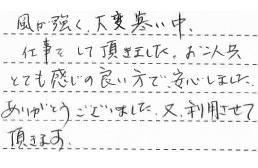 風が強く、大変寒い中、
仕事をして頂きました。お二人共
とても感じの良い方で、安心しました。
ありがとうございました。又、利用させて
頂きます。